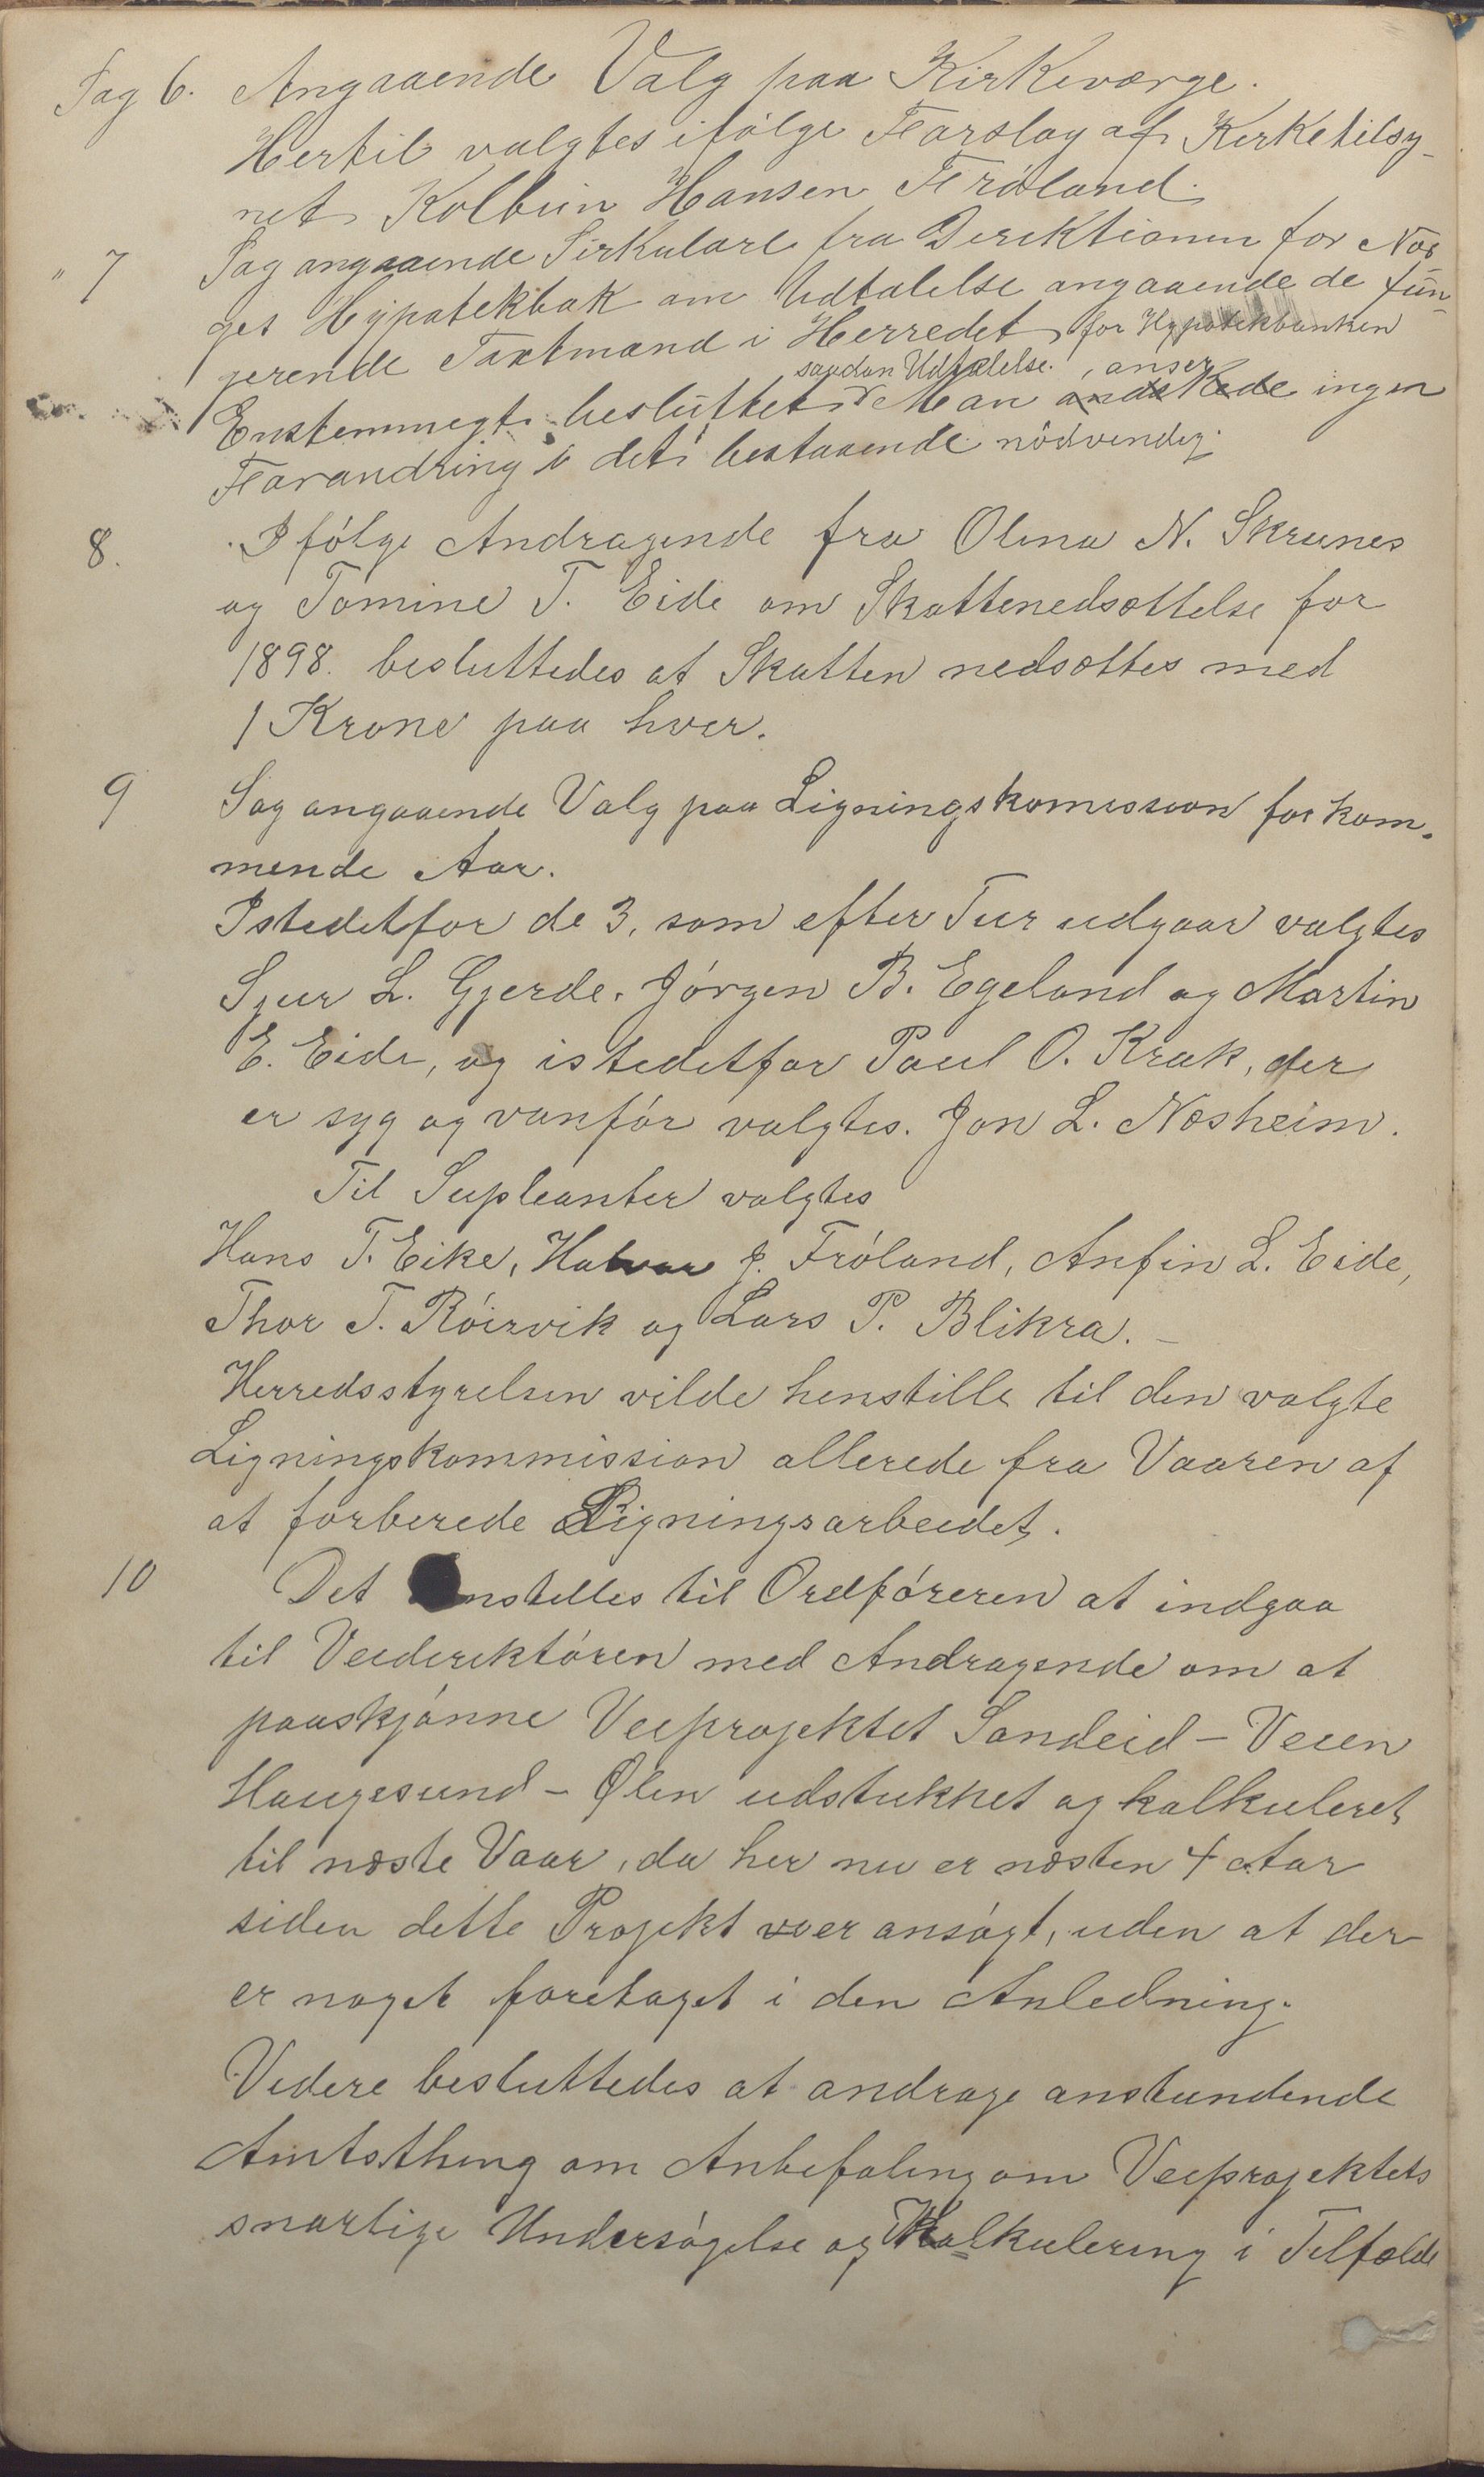 Sag 6. Angaaende Valg paa Kirkeværge.
Hertil valgtes ifølge Forslag af Kirketilsy-
net Kolbein Hansen Frøland.
" 7 Sag angaaende Sirkulære fra Direktionen for Nor
ges Hypotekbak om Udtalelse angaaende de fun-
gerende Taxtmænd i Herredet for Hypotekbanken
saadan Udtalelse. , anser
Enstemmegt besluttet Man ændskede ingen
Forandring i det bestaaende nødvendig.
8. Ifølge Andragende fra Olena N. Skrunes
og Tomine T. Eide om Skattenedsættelse for
1898. besluttedes at Skatten nedsættes med
1 Krone paa hver.
9 Sag angaaende Valg paa Ligningskomission for kom-
mende Aar.
Istedetfor de 3, som efter Tur udgaar valgtes
Sjur L. Gjerde, Jørgen B. Egeland og Martin
E. Eide, og istedetfor Paul O. Krak, der
er syg og vanfør valgtes. Jon L. Næsheim.
Til Supleanter valgtes
Hans T. Eike, Halvar J. Frøland, Anfin L. Eide,
Thor T. Røirvik og Lars P. Blikra. –
Herredsstyrelsen vilde henstille til den valgte
Ligningskommission allerede fra Vaaren af
at forberede Ligningsarbeidet.
10 Det enstilles til Ordføreren at indgaa
til Veidirektøren med Andragende om at
paaskjønne Veiprojektet Sandeid – Veien
Haugesund – Ølen udstukket og kalkuleret
til næste Vaar, da her nu er næsten 4 Aar
siden dette Projekt er ansøgt, uden at der
er noget foretaget i den Anledning.
Videre besluttedes at andrage anstundende
Amtsthing om Anbefaling om Veiprojektets
snarlige Undersøgelse og Kalkulering i Tilfælde